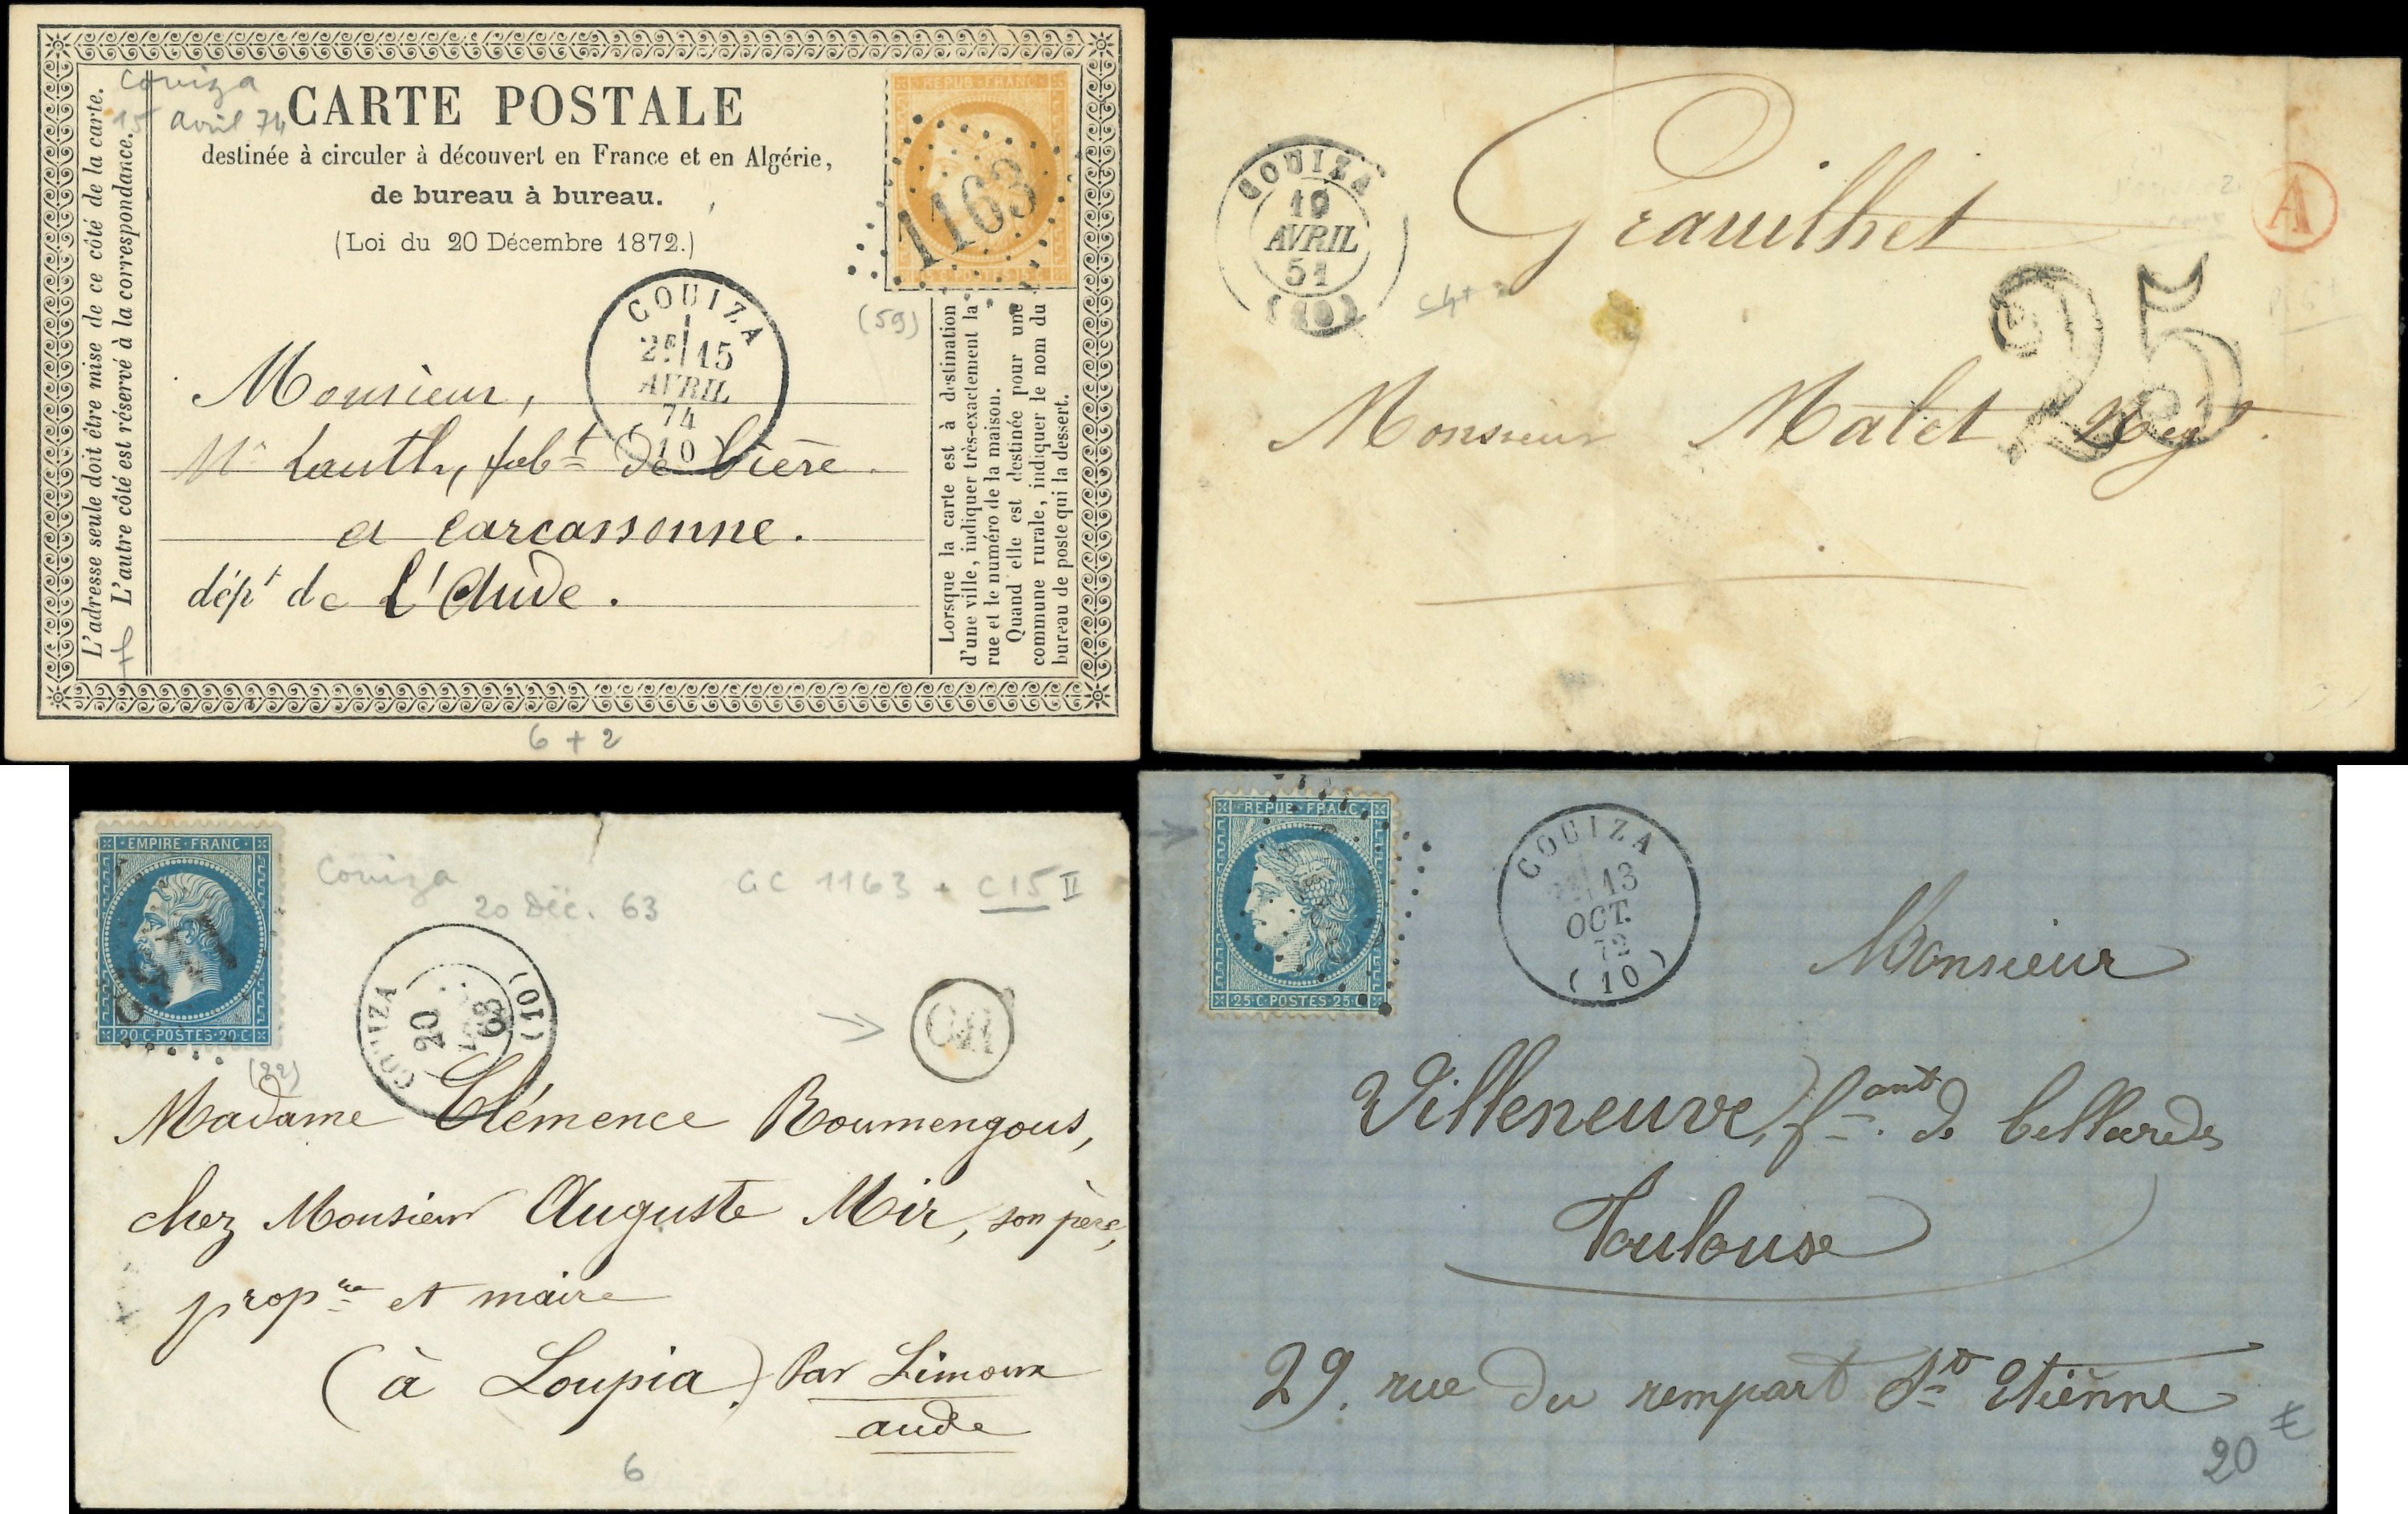 Couiza
15 avril 74
CARTE POSTALE
destinée à circuler à découvert en France et en Algérie,
de bureau à bureau.
(Loi du 20 Décembre 1872.)
L'adresse seule doit être mise de ce côté de la carte.
L'autre côté est réservé à la correspondance.
REPUB FRANC
15 C POSTES 15 C
1163
(59)
COUIZA
2E 15
AVRIL
74
(10)
Monsieur,
Lauth, fabt de bière
a Carcassonne.
dépt de L'Aude.
Lorsque la carte est à destination
d'une ville, indiquer très-exactement la
rue et le numéro de la maison.
Quand elle est destinée pour une
commune rurale, indiquer le nom du
bureau de poste qui la dessert.
6 + 2
COUIZA
19
AVRIL
51
(10)
Graulhet
A
25
Monsieur Malet Négt.
EMPIRE FRANC
20 C POSTES 20 C
(22)
Couiza
20 Déc. 63
GC 1163 + C15 II
COUIZA
20
63
(10)
OR
Madame Clémence Roumengous,
chez Monsieur Auguste Mir, son père,
propre et maire
(à Loupia) Par Limoux
aude
6
REPUB FRANC
25 C POSTES 25 C
COUIZA
13
OCT.
72
(10)
Monsieur
Villeneuve, fant de billards
Toulouse
29. rue du rempart St Etienne
20 €